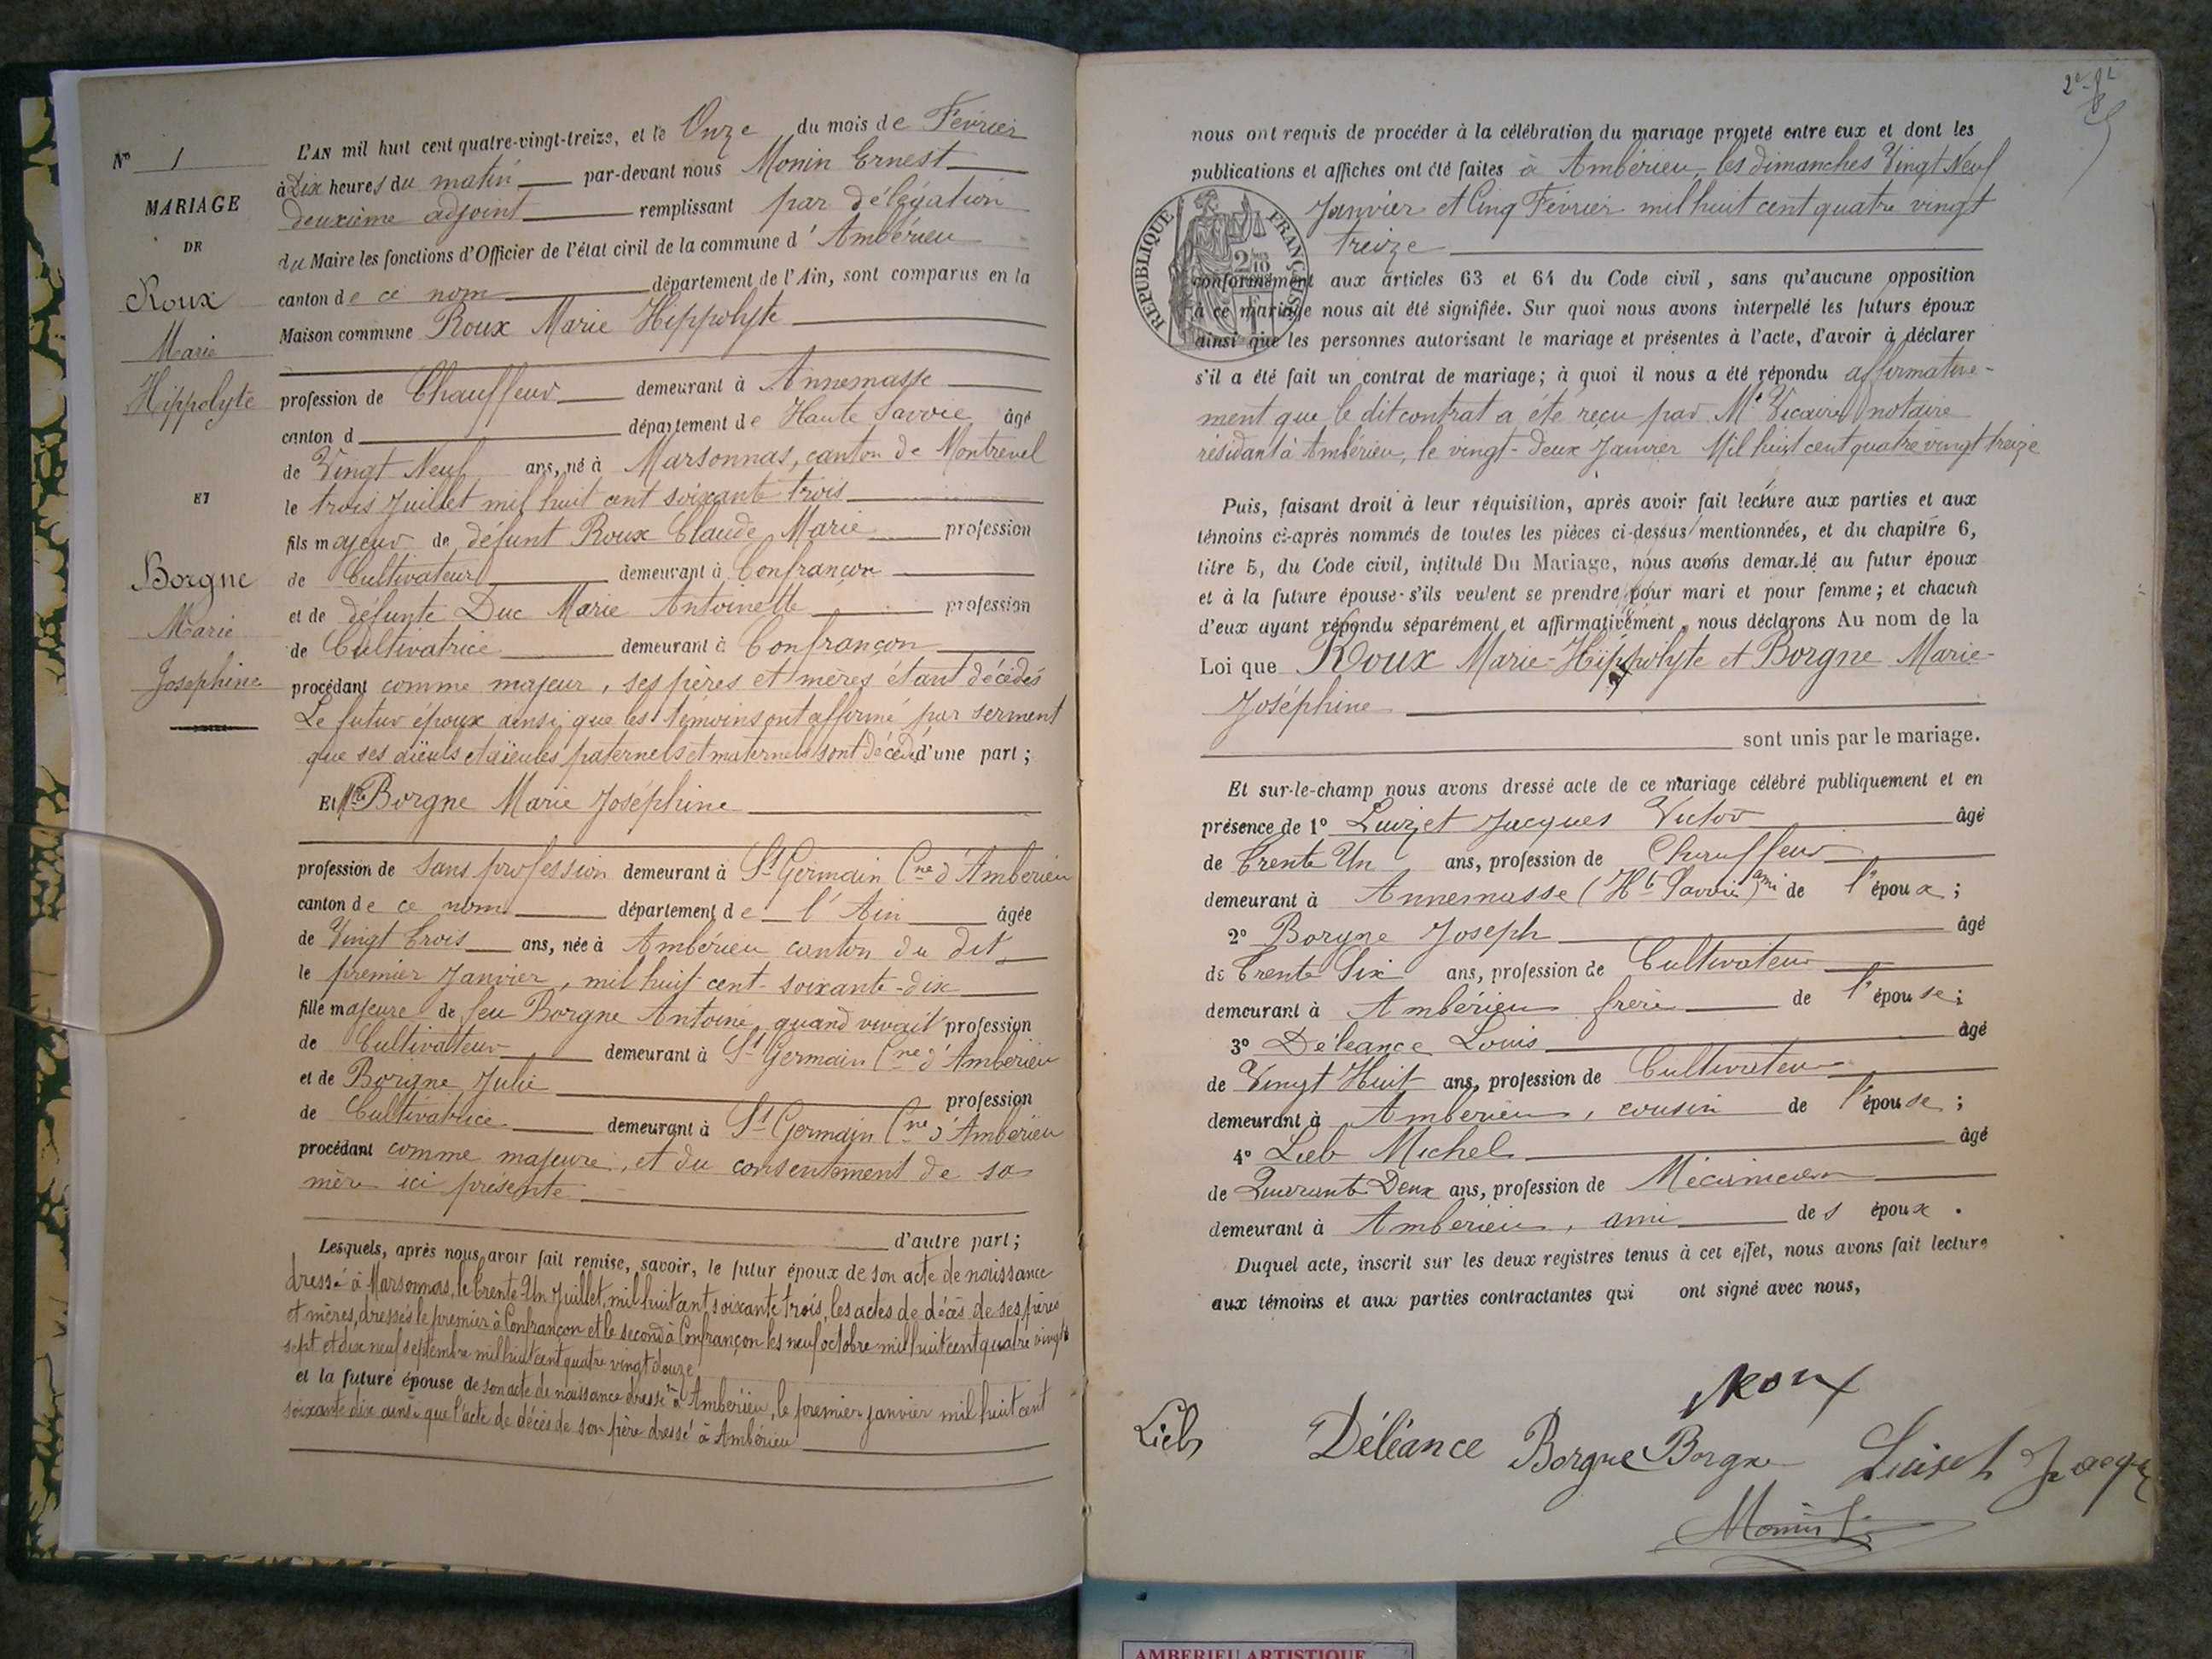 N° 1
MARIAGE
DE
Roux
Marie
Hippolyte
ET
Borgne
Marie
Joséphine
L'AN mil huit cent quatre-vingt-treize, et le Onze du mois de Février
à Dix heures du matin par-devant nous Monin Ernest
deuxième adjoint remplissant par délégation
du Maire les fonctions d'Officier de l'état civil de la commune d'Ambérieu
canton de ce nom département de l'Ain, sont comparus en la
Maison commune Roux Marie Hippolyte
profession de Chauffeur demeurant à Annemasse
canton d département de Haute Savoie âgé
de Vingt Neuf ans, né à Marsonnas, canton de Montrevel
le trois Juillet mil huit cent soixante trois
fils majeur de défunt Roux Claude Marie profession
de Cultivateur demeurant à Confrançon
et de défunte Duc Marie Antoinette profession
de Cultivatrice demeurant à Confrançon
procédant comme majeur, ses pères et mères étant décédés
Le futur époux ainsi que les témoins ont affirmé par serment
que ses aïeuls et aïeules paternels et maternels sont décédés d'une part ;
Et Mlle Borgne Marie Joséphine
profession de sans profession demeurant à St Germain Cne d'Ambérieu
canton de ce nom département de l'Ain âgée
de Vingt trois ans, née à Ambérieu canton du dit
le premier Janvier, mil huit cent-soixante-dix
fille majeure de feu Borgne Antoine, quand vivait profession
de Cultivateur demeurant à St Germain Cne d'Ambérieu
et de Borgne Julie profession
de Cultivatrice demeurant à St Germain Cne d'Ambérieu
procédant comme majeure, et du consentement de sa
mère ici présente
d'autre part ;
Lesquels, après nous avoir fait remise, savoir, le futur époux de son acte de naissance
dressé à Marsonnas, le trente-Un Juillet mil huit cent soixante trois, les actes de décès de ses pères
et mères, dressés le premier à Confrançon et le second à Confrançon les neuf octobre mil huit cent quatre vingt
sept et dix neuf septembre mil huit cent quatre vingt douze
et la future épouse de son acte de naissance dressé à Ambérieu, le premier janvier mil huit cent
soixante dix ainsi que l'acte de décès de son père dressé à Ambérieu
nous ont requis de procéder à la célébration du mariage projeté entre eux et dont les
publications et affiches ont été faites à Ambérieu, les dimanches Vingt Neuf
Janvier et Cinq Février mil huit cent quatre vingt
treize
RÉPUBLIQUE FRANÇAISE
conformément aux articles 63 et 64 du Code civil, sans qu'aucune opposition
à ce mariage nous ait été signifiée. Sur quoi nous avons interpellé les futurs époux
ainsi que les personnes autorisant le mariage et présentes à l'acte, d'avoir à déclarer
s'il a été fait un contrat de mariage ; à quoi il nous a été répondu affirmative-
ment que le dit contrat a été reçu par Me Vicaire notaire
résidant à Ambérieu, le vingt-deux Janvier Mil huit cent quatre vingt treize
Puis, faisant droit à leur réquisition, après avoir fait lecture aux parties et aux
témoins ci-après nommés de toutes les pièces ci-dessus mentionnées, et du chapitre 6,
titre 5, du Code civil, intitulé Du Mariage, nous avons demandé au futur époux
et à la future épouse s'ils veulent se prendre pour mari et pour femme ; et chacun
d'eux ayant répondu séparément et affirmativement, nous déclarons Au nom de la
Loi que Roux Marie-Hippolyte et Borgne Marie-
Joséphine
sont unis par le mariage.
Et sur-le-champ nous avons dressé acte de ce mariage célébré publiquement et en
présence de 1° Luizet Jacques Victor âgé
de Trente Un ans, profession de Chauffeur
demeurant à Annemasse (Hte Savoie) ami de l'époux ;
2° Borgne Joseph âgé
de Trente Six ans, profession de Cultivateur
demeurant à Ambérieu frère de l'épouse ;
3° Déléance Louis âgé
de Vingt Huit ans, profession de Cultivateur
demeurant à Ambérieu, cousin de l'épouse ;
4° Lieb Michel âgé
de Quarante Deux ans, profession de Mécanicien
demeurant à Ambérieu, ami des époux.
Duquel acte, inscrit sur les deux registres tenus à cet effet, nous avons fait lecture
aux témoins et aux parties contractantes qui ont signé avec nous,
Roux
Lieb Déléance Borgne Borgne Luizet Jacques
Monin
AMBERIEU ARTISTIQUE